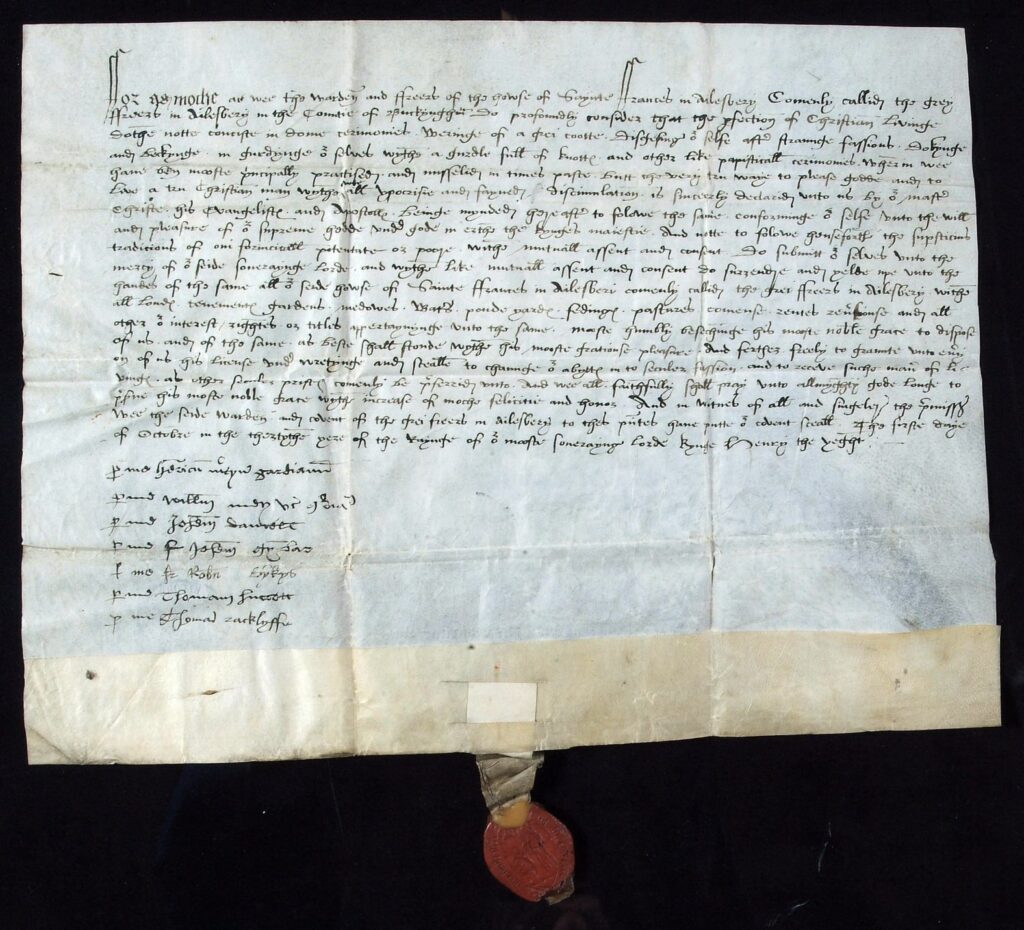 For as moche as wee the warden and ffreers of the howse of Saynte Frances in Ailesbery Comenly callid the grey
ffreers in Ailesbery in the Comtie of Buckyngh̄m Do profoundly consider that the pfection of Christian Livinge
Dothe notte conciste in dome cerimonies Weringe of a grei cootte. Disgesing oʳ selfe aftʳ straunge fassions. Dokynge
and Beckynge. in gurdynge oʳ selves wythe a gurdle full of knotts and other like papisticall cerimonies. Wher in wee
have ben mooste pʳncipally practised and misselid in times paste. Butt the very tru waye to please godde. and to
Live a tru Christian man wythe owte all ypocrisie and fayned discimulation. is sincerly declarid unto us by oʳ mastʳ
Christe. his Evangelists. and Apostols. Beinge mynded hereaftʳ to folowe the same. conforminge oʳ self unto the will
and pleasure of oʳ supreme hedde undʳ gode in erthe the kynges maiestie. And notte to folowe henseforth the supsticius
tradicions of oni forincicall potentate or poore. withe mutuall assent and consent. Do submitt oʳ selves unto the
mercy of oʳ seide soueraynge lorde. and wythe like mutuall assent and consent do surrender and yelde upe unto the
handes of the same all oʳ seide howse of Sainte ffrances in Ailesberi comenly callid the grei ffreers in Ailesbery withe
all londs. tenements gardens. medowes. Watʳs. ponde yards. fedings. pastures. comens. rentes reuʳsions and all
other oʳ interest. rightes or titles appertaynynge unto the same. moste humbly beschinge his moste noble grace to dispose
of us. and of the same. as beste shall stonde wythe his mooste gratiouse pleasure. And further freely to graunte unto euʳy
on of us his license undʳ wretynge and sealle to chaunge oʳ abytts in to seculer fassion. and to receve suche manʳ of li-
vings. as other seculer prists comenly be pʳferrid unto. And wee all faithfully shall pray unto allmyghty gode longe to
pʳserve his moste noble grace wythe increase of moche felicitie and honor. And in witnes of all and singuler the pʳmisses
wee the seide warden and covent of the grei freers in Ailesbery to thes pʳntes have putte oʳ covent sceall. The firste daye
of Octobre in the thertythe yere of the raynge of oʳ mooste soueraynge lorde kynge Henry the yeght.
p me gardianū
p me
p me Johēm
p me fr Johēm
p me fr Robti
p me Thomam
p me Thomā Racklyffe